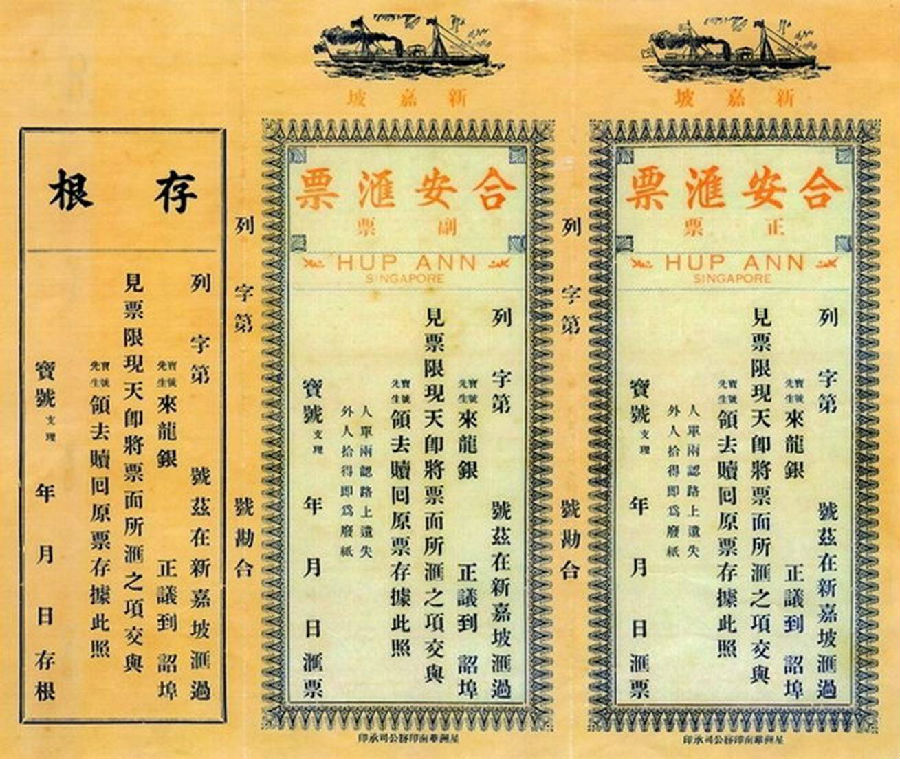 新嘉坡
合安滙票
正票
HUP ANN
SINGAPORE
列 字第 號茲在新嘉坡滙過
寶號先生來龍銀 正議到 詔埠
見票限現天卽將票面所滙之項交與
寶號先生領去贖囘原票存據此照
人單兩認路上遺失
外人拾得即爲廢紙
寶號支理 年 月 日滙票
星洲華南印務公司承印
列 字第 號勘合
新嘉坡
合安滙票
副票
HUP ANN
SINGAPORE
列 字第 號茲在新嘉坡滙過
寶號先生來龍銀 正議到 詔埠
見票限現天卽將票面所滙之項交與
寶號先生領去贖囘原票存據此照
人單兩認路上遺失
外人拾得即爲廢紙
寶號支理 年 月 日滙票
星洲華南印務公司承印
列 字第 號勘合
存根
列 字第 號茲在新嘉坡滙過
寶號先生來龍銀 正議到 詔埠
見票限現天卽將票面所滙之項交與
寶號先生領去贖囘原票存據此照
寶號支理 年 月 日存根